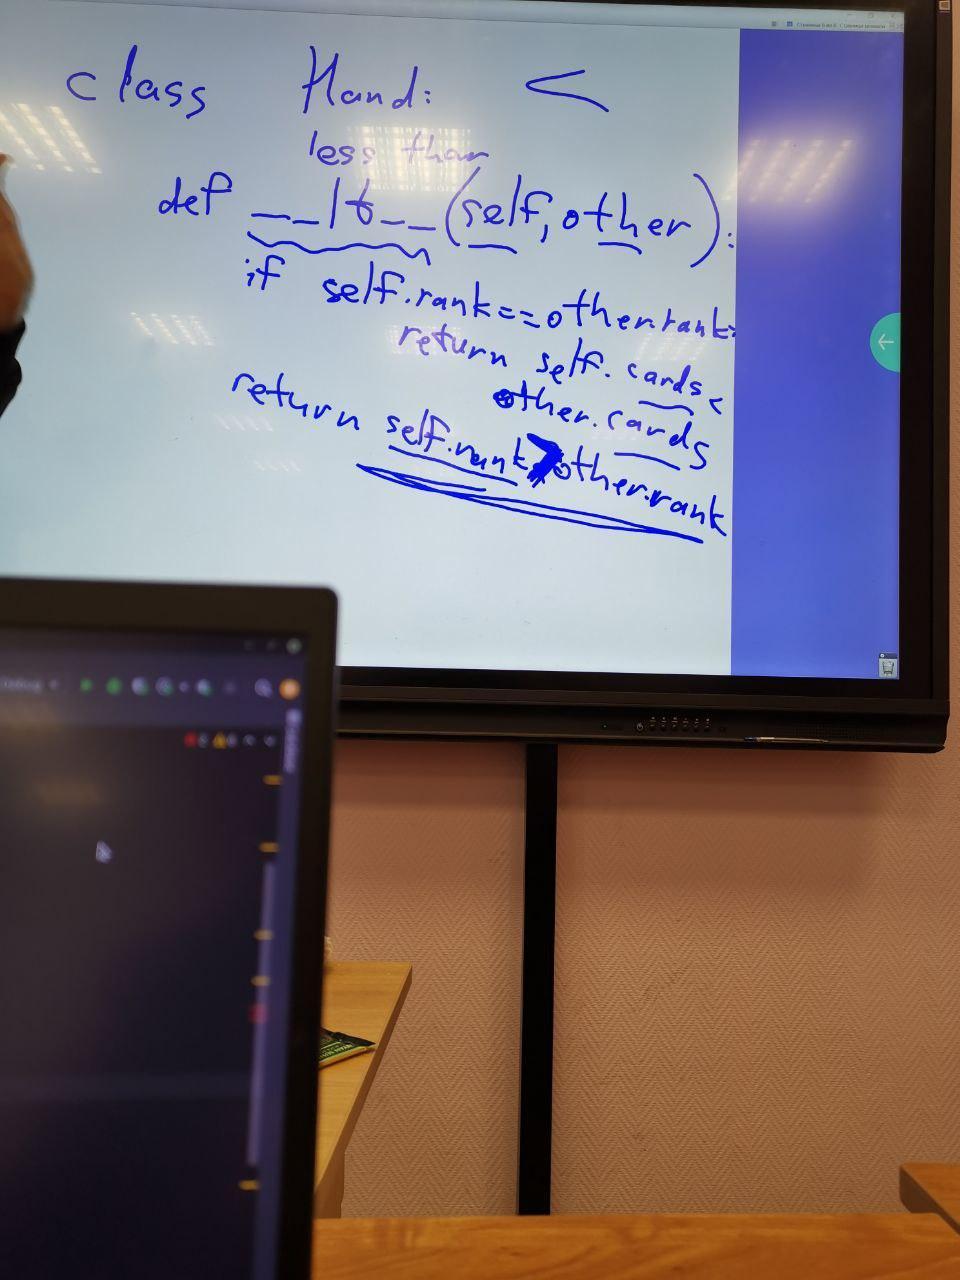 class Hand: <
less than
def __lt__(self, other):
if self.rank==other.rank:
return self.cards <
other.cards
return self.rank > other.rank